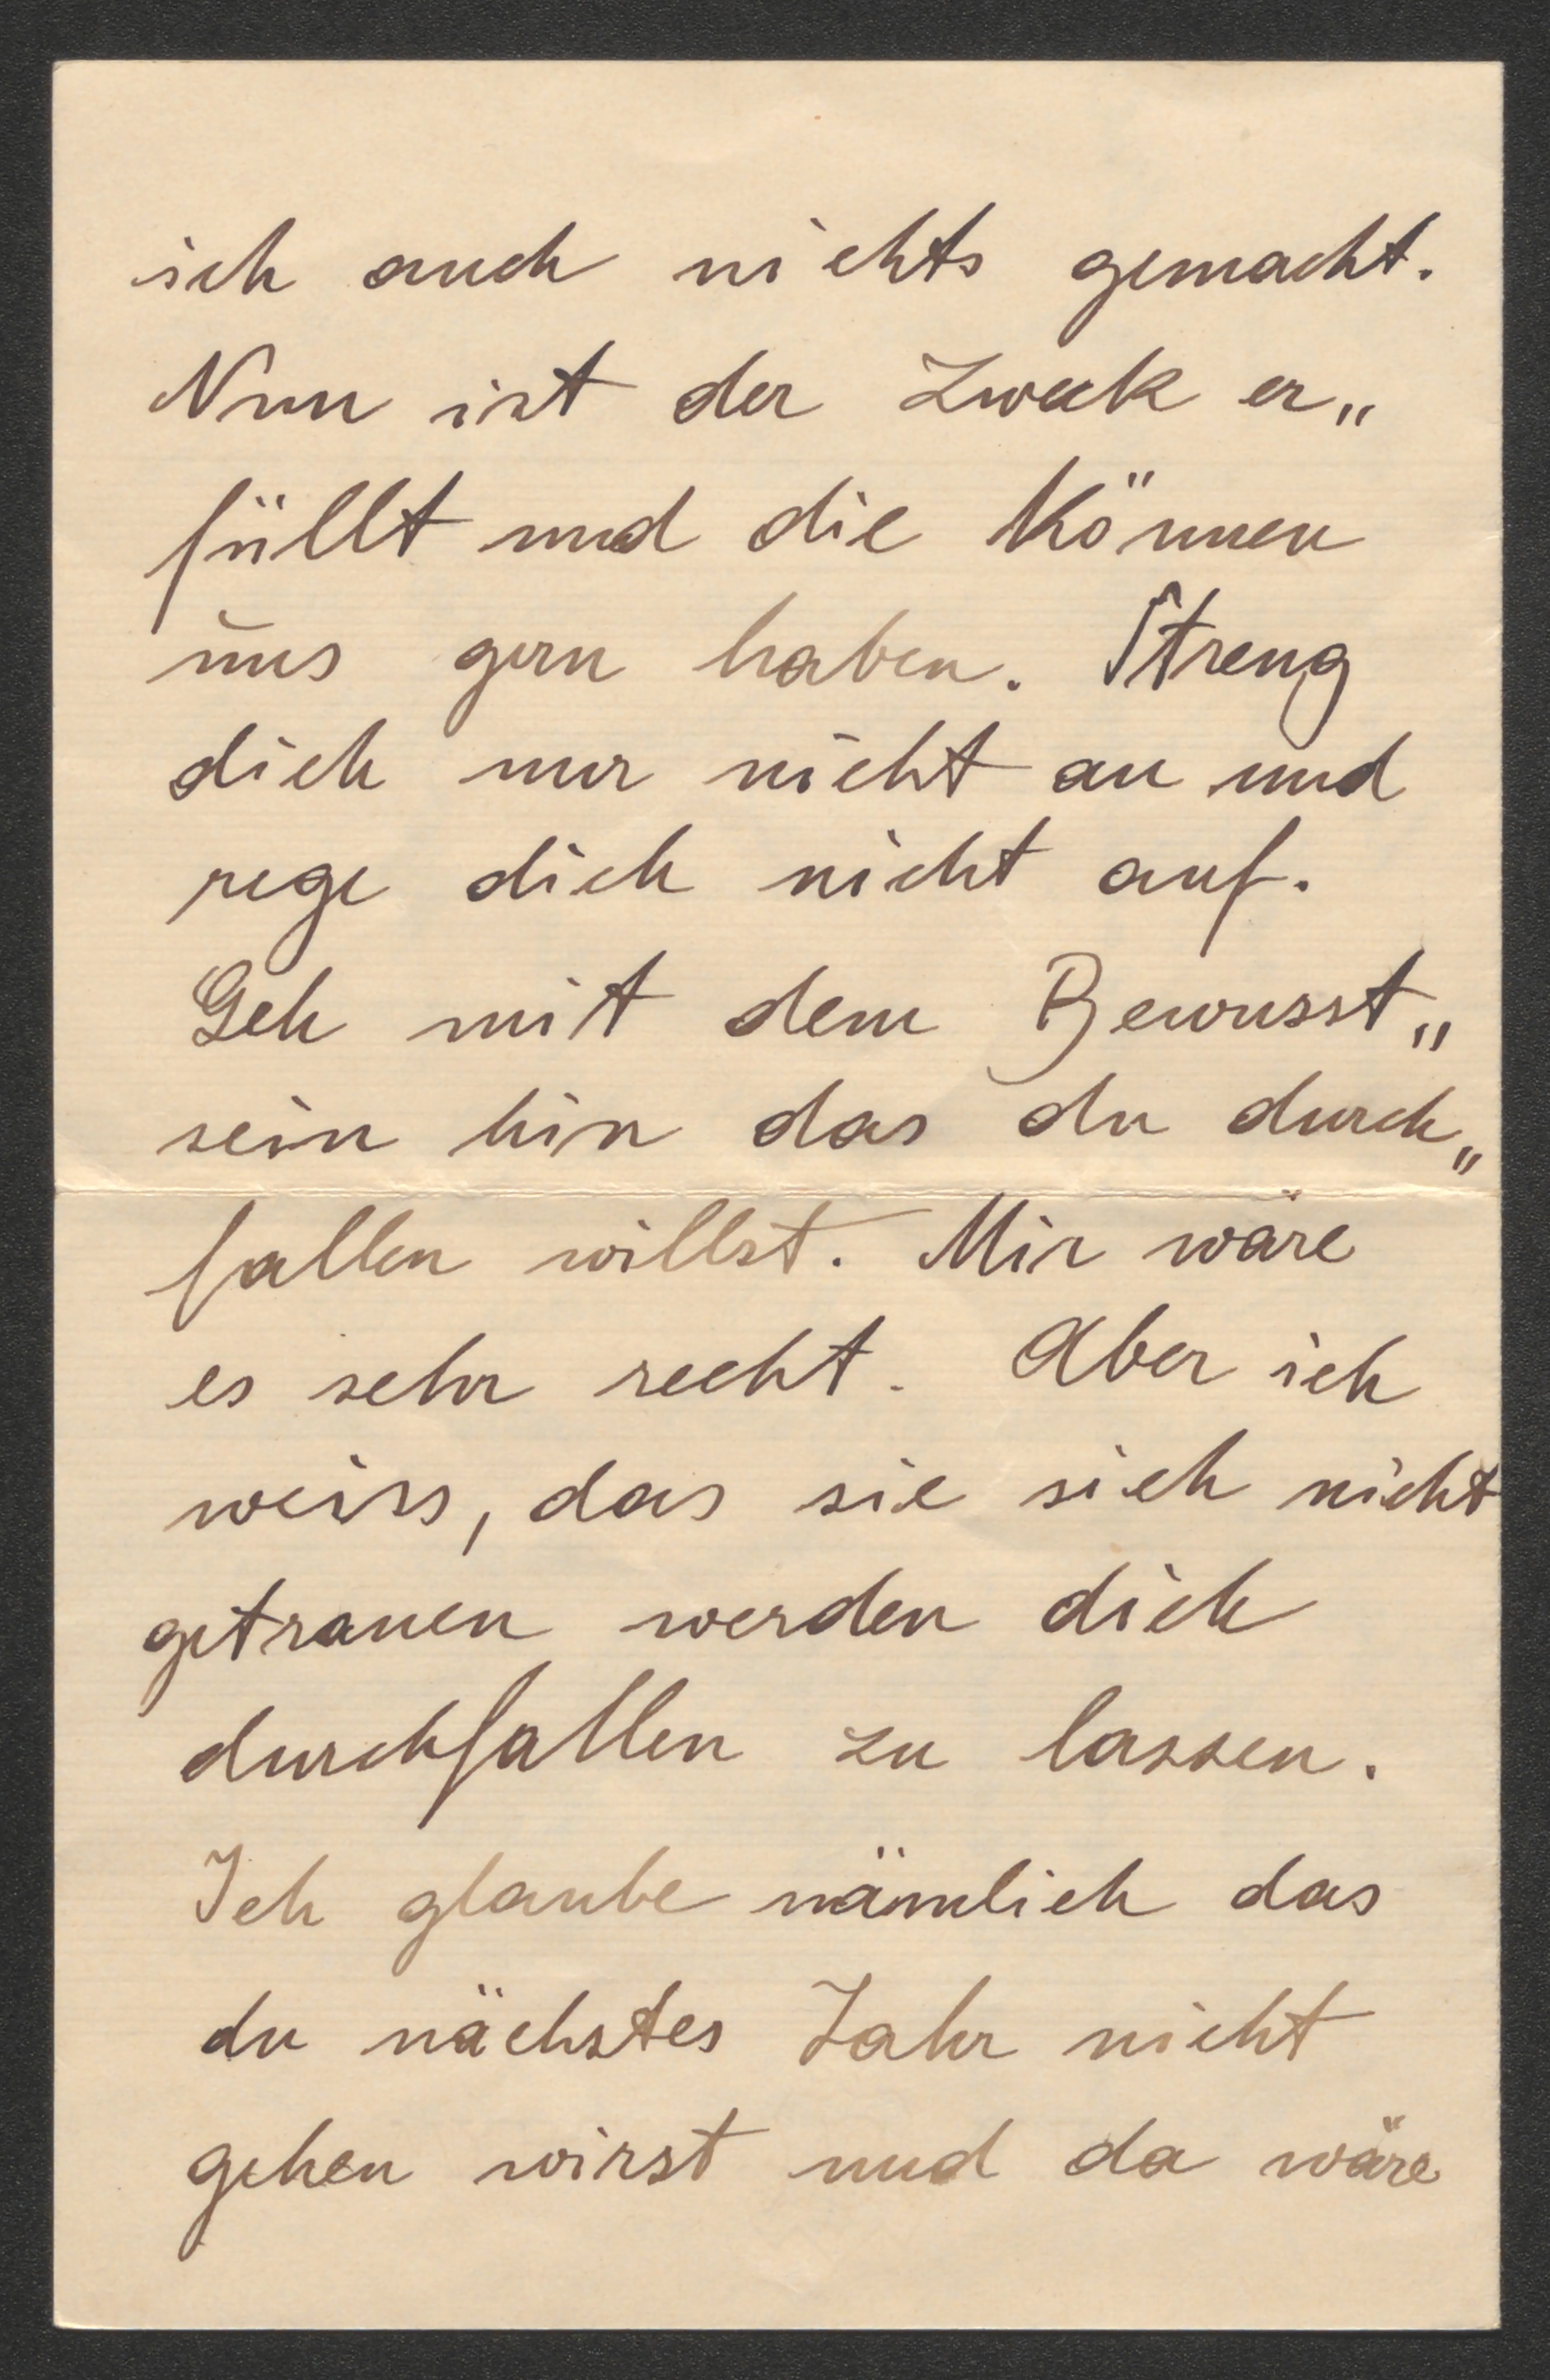 ich auch nichts gemacht.
Nun ist der Zweck er„
füllt und die können
uns gern haben. Streng
dich nur nicht an und
rege dich nicht auf.
Geh mit dem Bewusst„
sein hin das du durch„
fallen willst. Mir wäre
es sehr recht. Aber ich
weiss, das sie sich nicht
getrauen werden dich
durchfallen zu lassen.
Ich glaube nämlich das
du nächstes Jahr nicht
gehen wirst und da wäre